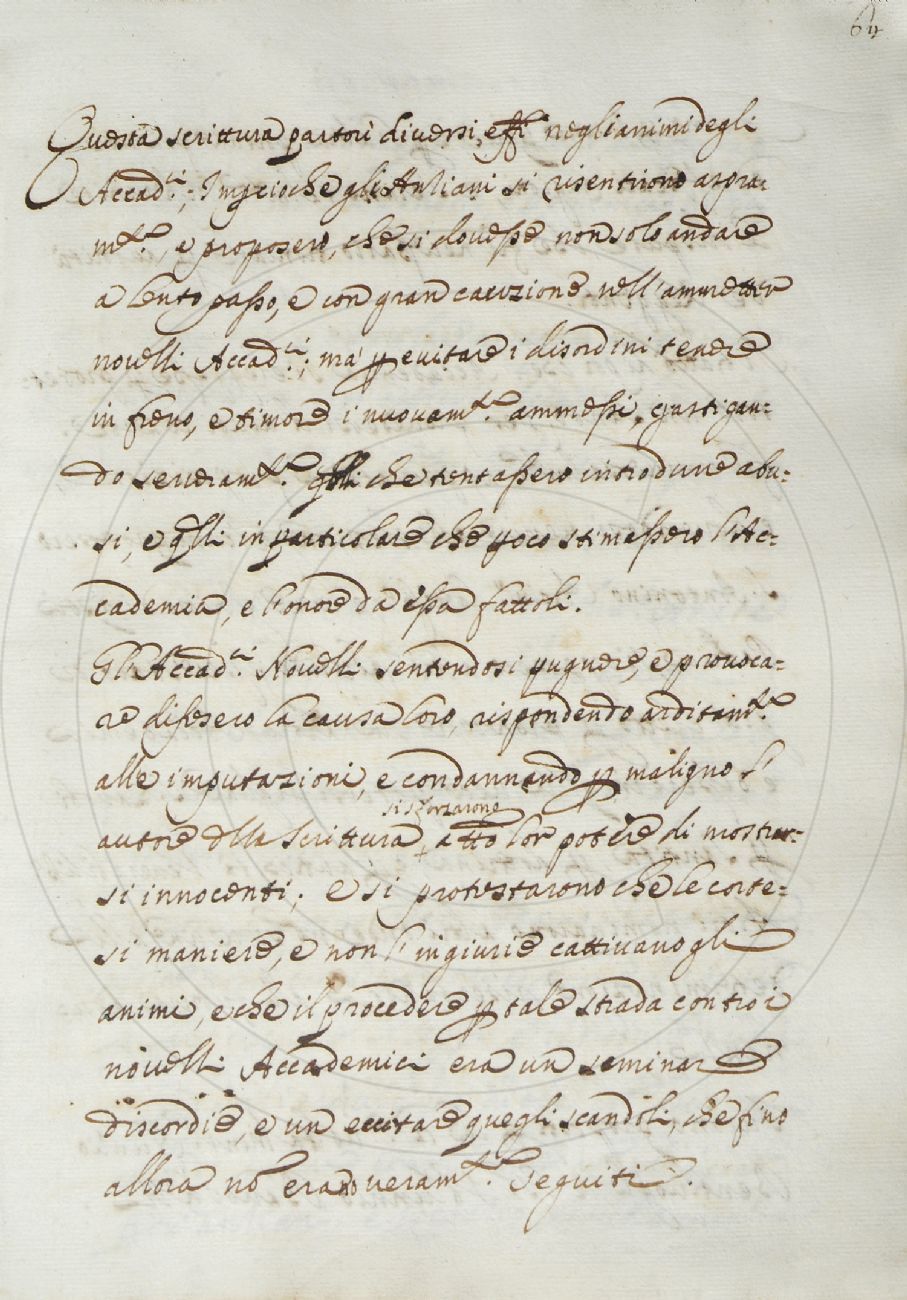 64
Questa scrittura partorì diversi eff.i negli animi degli
Accad.ci; Imperioche gli Anziani si risentirono aspra=
m.te, e proposero, che si dovesse non solo andare
a lento passo, e con gran cauzione nell'ammetter
novelli Accad.ci; mà p evitare i disordini tenere
in freno, e timore i nuovam.te ammessi, gastigan=
do severam.te qlli che tentassero introdurre abu=
si, e qlli in particolare che poco stimassero l'Ac=
cademia, e l'onore da essa fattoli.
Gl'Accad.ci Novelli sentendosi pugnere, e provoca=
re difesero la causa loro, rispondendo arditam.te
alle imputazioni, e condannando p maligno l'
si sforzarono
autore dlla scrittura, a tto lor potere di mostrar=
si innocenti; e si protestarono che le corte=
si maniere, e non l'ingiurie cattivano gli
animi, e che il procedere p tale strada contro i
novelli Accademici era un seminar
discordie, e un eccitare quegli scandoli, che fino
allora nō erano veram.te seguiti.